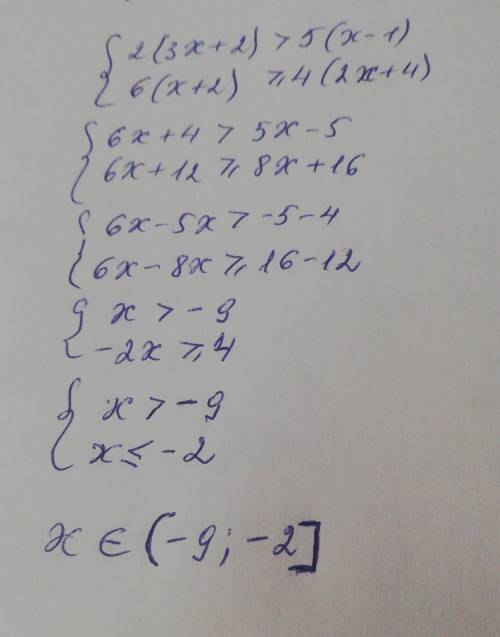 { 2(3x+2) > 5(x-1)
6(x+2) ≥ 4(2x+4)
{ 6x+4 > 5x-5
6x+12 ≥ 8x+16
{ 6x-5x > -5-4
6x-8x ≥ 16-12
{ x > -9
-2x ≥ 4
{ x > -9
x ≤ -2
x ∈ (-9; -2]